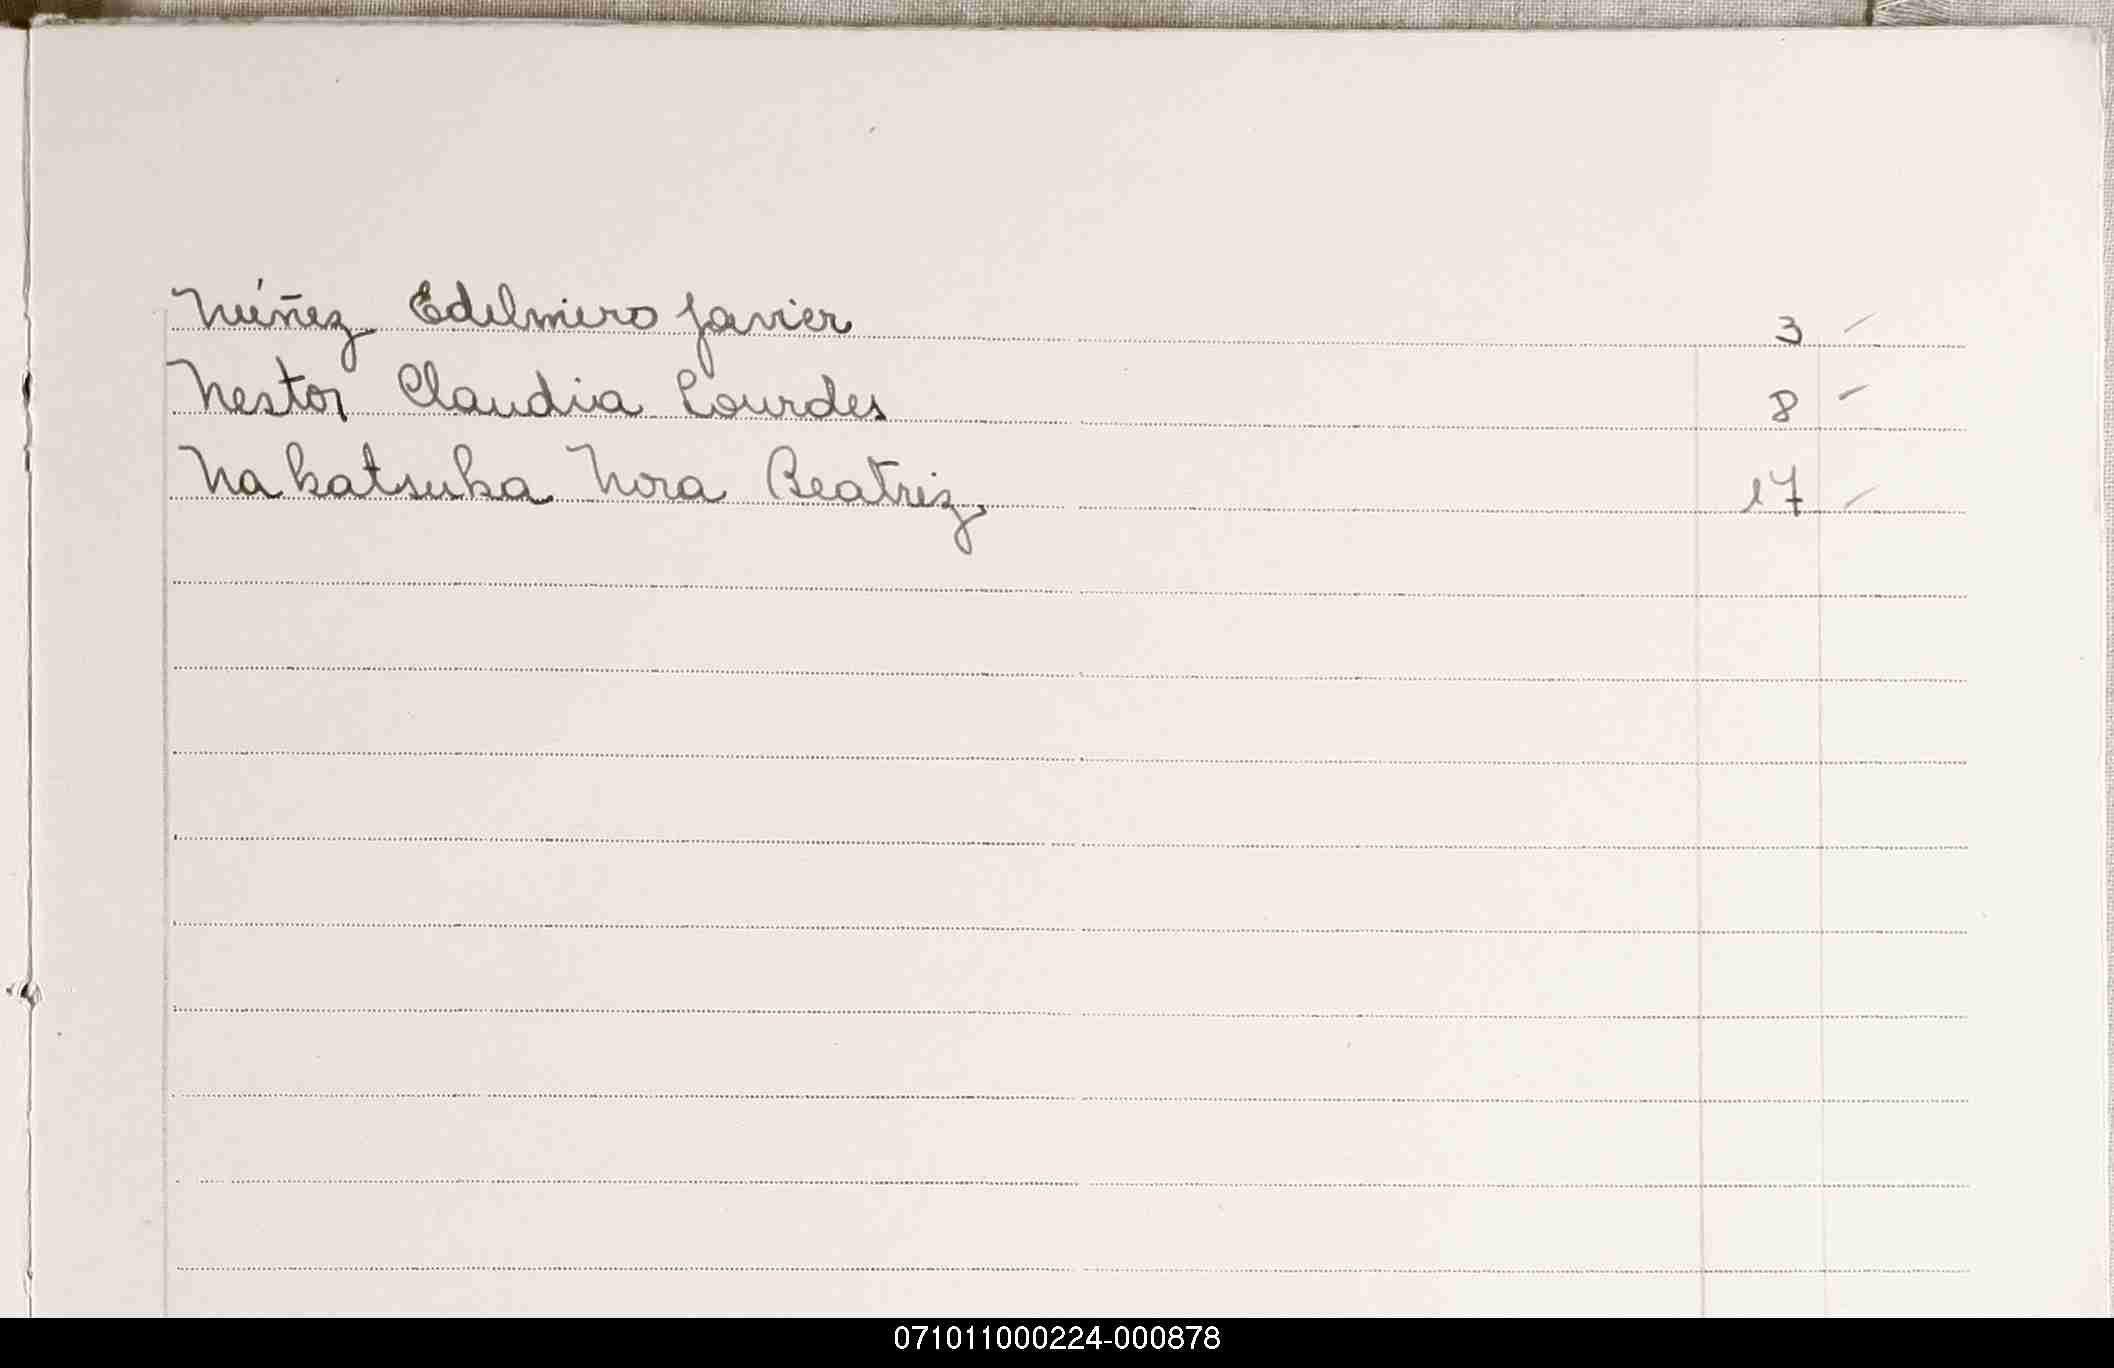 Núñez Edelmiro Javier 3
Nestor Claudia Lourdes 8
Nakatsuka Nora Beatriz 17
071011000224-000878